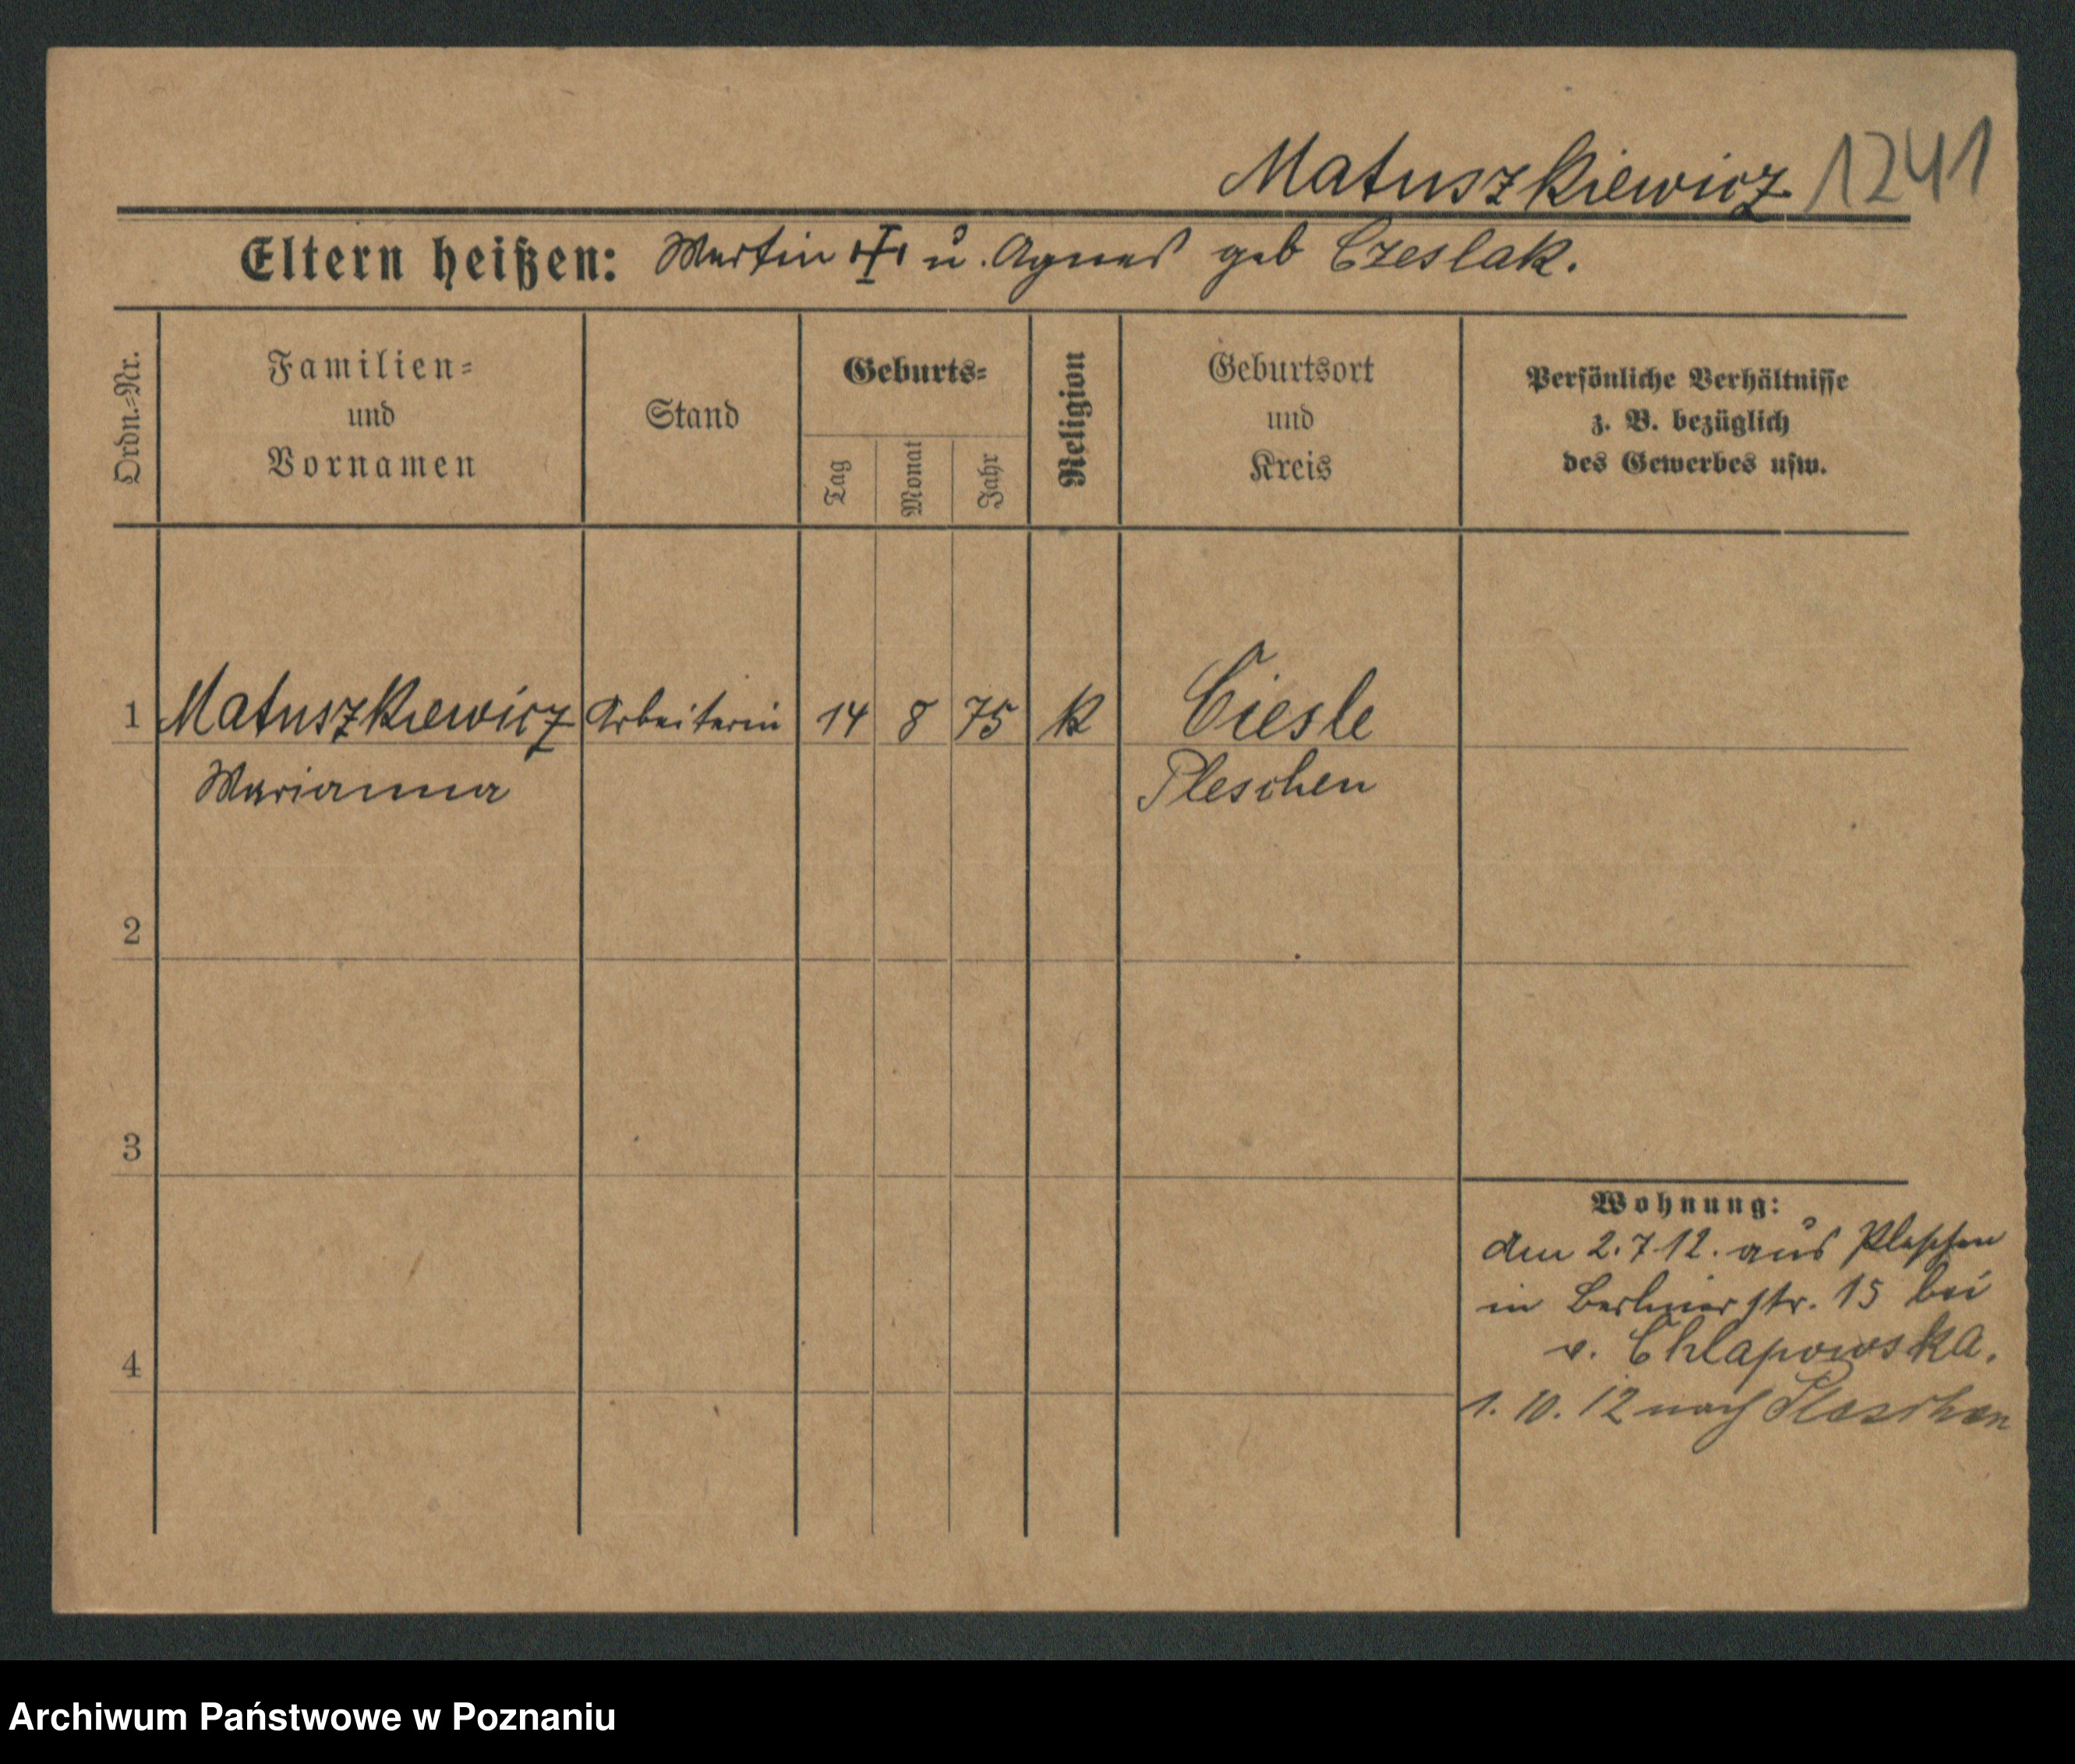 Matuszkiewicz 1241
Eltern heißen: Martin † u. Agnes geb Czeslak.
Ordn.-Nr.
Familien-
und
Vornamen
Stand
Geburts-
Tag
Monat
Jahr
Religion
Geburtsort
und
Kreis
Persönliche Verhältnisse
z. B. bezüglich
des Gewerbes usw.
1 Matuszkiewicz Arbeiterin 14 8 75 K Ciesle
Marianna Pleschen
2
3
Wohnung:
am 2.7 12. aus Pleschen
in Berlinerstr. 15 bei
v. Chlapowska.
4
1. 10. 12 nach Pleschen
Archiwum Państwowe w Poznaniu